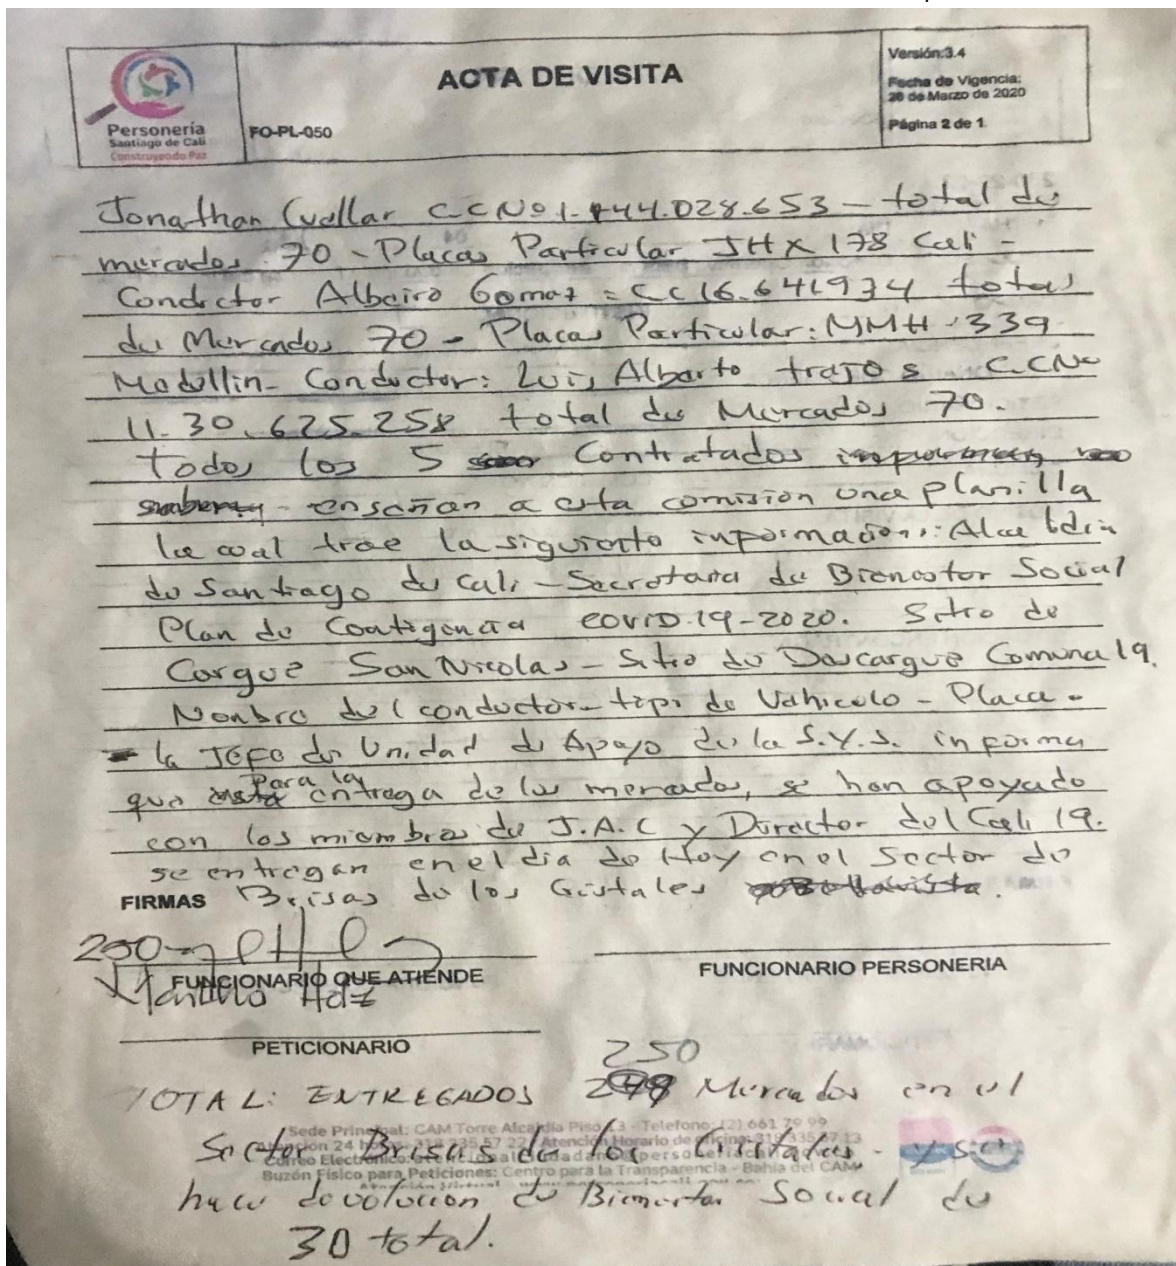 Personería
Santiago de Cali
Construyendo Paz
FO-PL-050
ACTA DE VISITA
Versión:3.4
Fecha de Vigencia:
26 de Marzo de 2020
Página 2 de 1
Jonathan Cuellar C.C Nº 1.144.028.653 - total de
mercados 70 - Placas Particular JHX 178 Cali -
Conductor Albeiro Gomez = CC 16.641934 total
de Mercados 70 - Placas Particular: MMH-339
Medellin - Conductor: Luis Alberto trejos C.C No
11.30.625.258 total de Mercados 70.
todos los 5 Contratados
enseñan a esta comisión una planilla
la cual trae la siguiente información: Alcaldia
de Santiago de Cali - Secretaria de Bienestar Social
Plan de Contigencia COVID.19-2020. Sitio de
Cargue San Nicolas - Sitio de Descargue Comuna 19.
Nombre del conductor - tipo de Vehiculo - Placa -
la Jefe de Unidad de Apoyo de la S.Y.S. informa
que Para la entrega de los mercados, se han apoyado
con los miembros de J.A.C y Director del Cali 19.
se entregan en el dia de Hoy en el Sector de
FIRMAS Brisas de los Cristales
250
FUNCIONARIO QUE ATIENDE
FUNCIONARIO PERSONERIA
PETICIONARIO
250
TOTAL: ENTREGADOS Mercados en el
Sede Principal: CAM Torre Alcaldía Piso 13 - Telefono: (2) 661 79 99
Sector Brisas de los Cristales - y se
Buzón Físico para Peticiones: Centro para la Transparencia - Bahía del CAM
hace devolucion de Bienestar Social de
30 total.